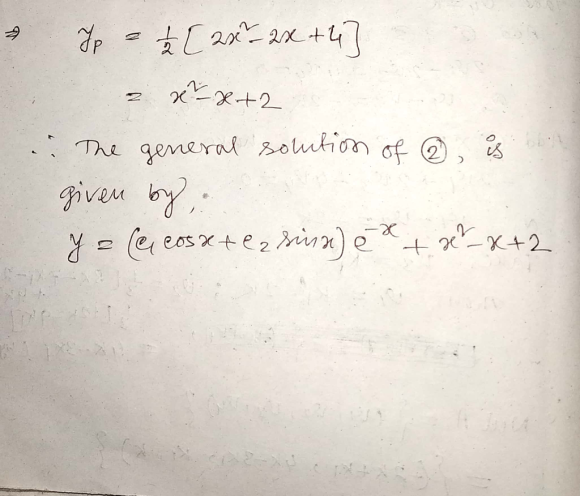 ⇒ y_p = 1/2 [ 2x² - 2x + 4 ]
= x² - x + 2
∴ The general solution of ②, is
given by,
y = (c₁ cosx + c₂ sinx) e^-x + x² - x + 2